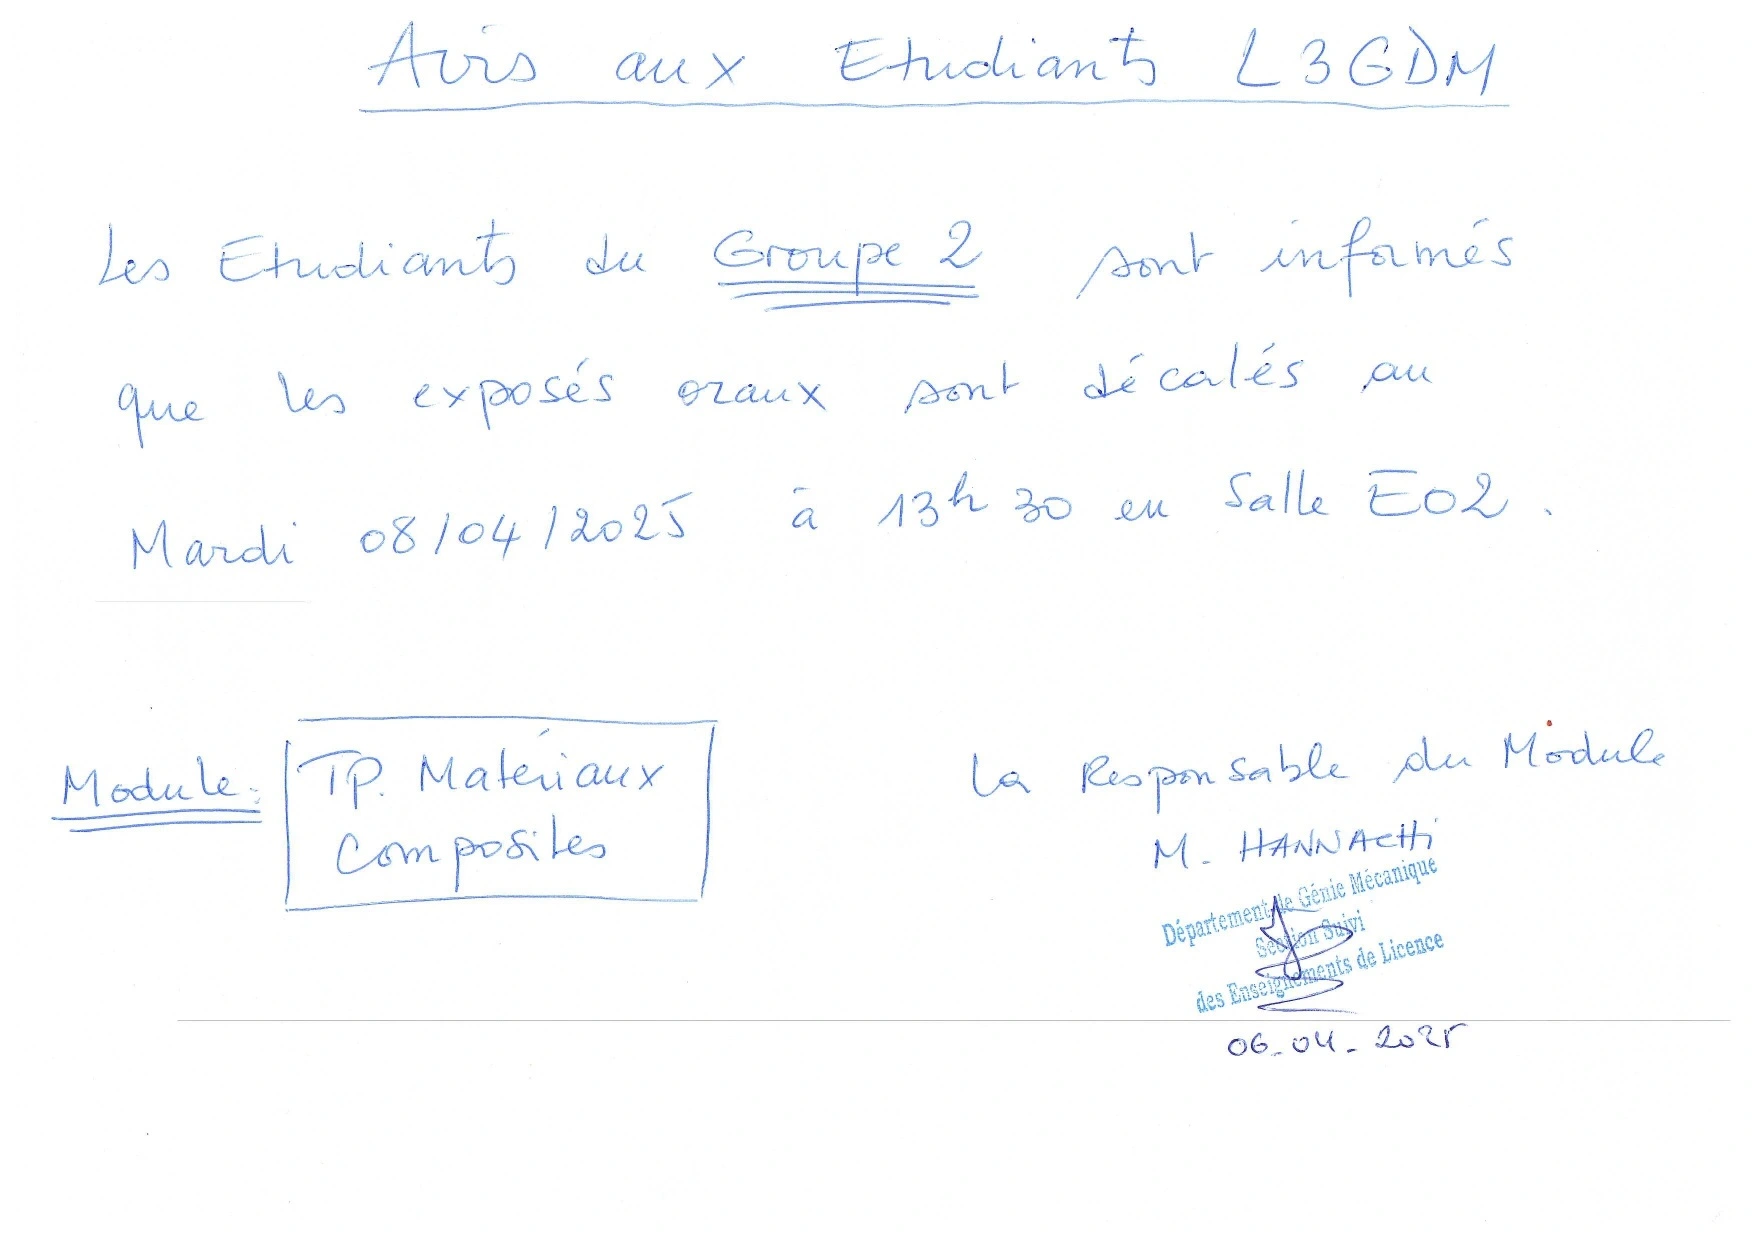 Avis aux Etudiants L3GDM
Les Etudiants du Groupe 2 sont informés
que les exposés oraux sont décalés au
Mardi 08/04/2025 à 13h30 en Salle E02.
Module: TP. Matériaux
Composites
La Responsable du Module
M. HANNACHI
Département de Génie Mécanique
Section Suivi
des Enseignements de Licence
06-04-2025